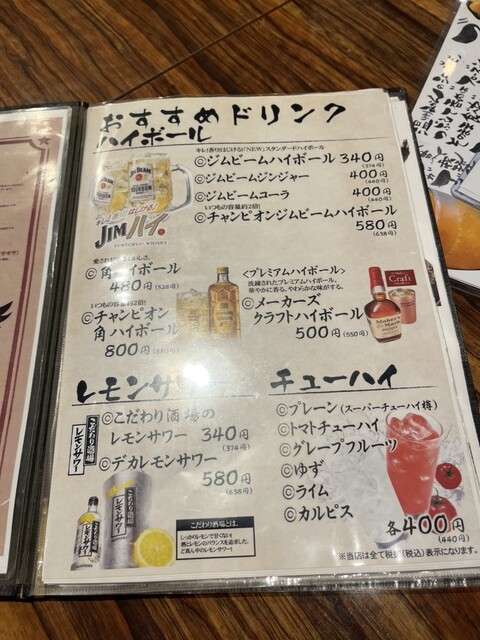 おすすめドリンク
ハイボール
キレ!香りはじける!「NEW」スタンダードハイボール
©ジムビームハイボール 340円
(374円)
©ジムビームジンジャー 400円
(440円)
©ジムビームコーラ 400円
(440円)
いつもの容量約2倍!
©チャンピオンジムビームハイボール
580円
(638円)
JIM BEAM
BOURBON
キレ!香り はじける!
JIMハイ。
SUNTORY ITS WHISKY
©角ハイボール
480円(528円)
いつもの容量約2倍!
©チャンピオン
角ハイボール
800円
〈プレミアムハイボール〉
洗練されたプレミアムハイボール。
華やかに香る、やわらかな味がする。
©メーカーズ
クラフトハイボール
500円(550円)
Craft
Maker's
Mark
レモンサワー
こだわり酒場の
レモンサワー
©こだわり酒場の
レモンサワー 340円
(374円)
©デカレモンサワー
580円
(638円)
こだわり酒場の
レモンサワー
こだわり酒場とは、
しっかりレモンで甘くない!
酒とレモンのバランスを追求した、
ど真ん中のレモンサワー!
チューハイ
©プレーン(スーパーチューハイ樽)
©トマトチューハイ
©グレープフルーツ
©ゆず
©ライム
©カルピス
各400円
(440円)
※当店は全て税抜(税込)表示になります。